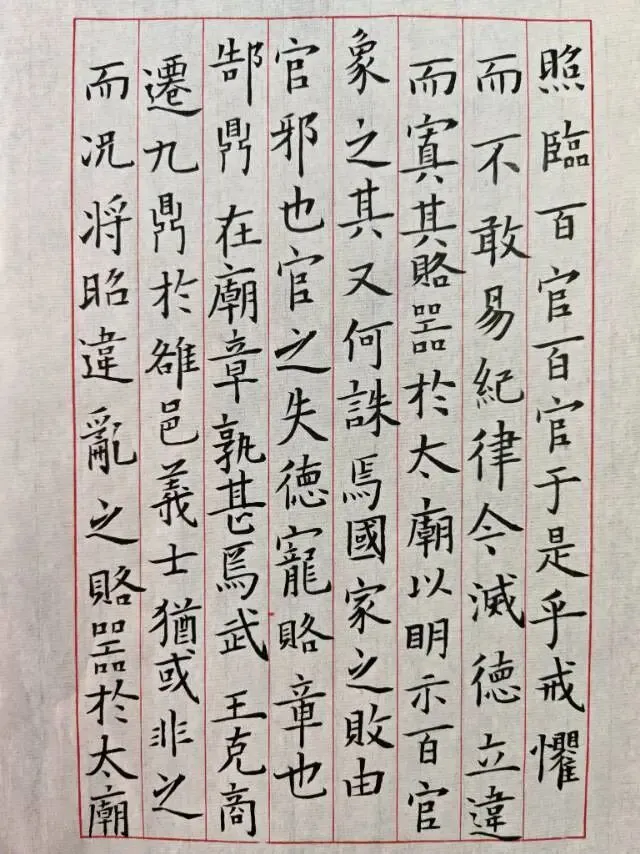 照臨百官百官于是乎戒懼
而不敢易紀律今滅德立違
而寘其賂器於太廟以明示百官
象之其又何誅焉國家之敗由
官邪也官之失德寵賂章也
郜鼎在廟章孰甚焉武王克商
遷九鼎於雒邑義士猶或非之
而況將昭違亂之賂器於太廟